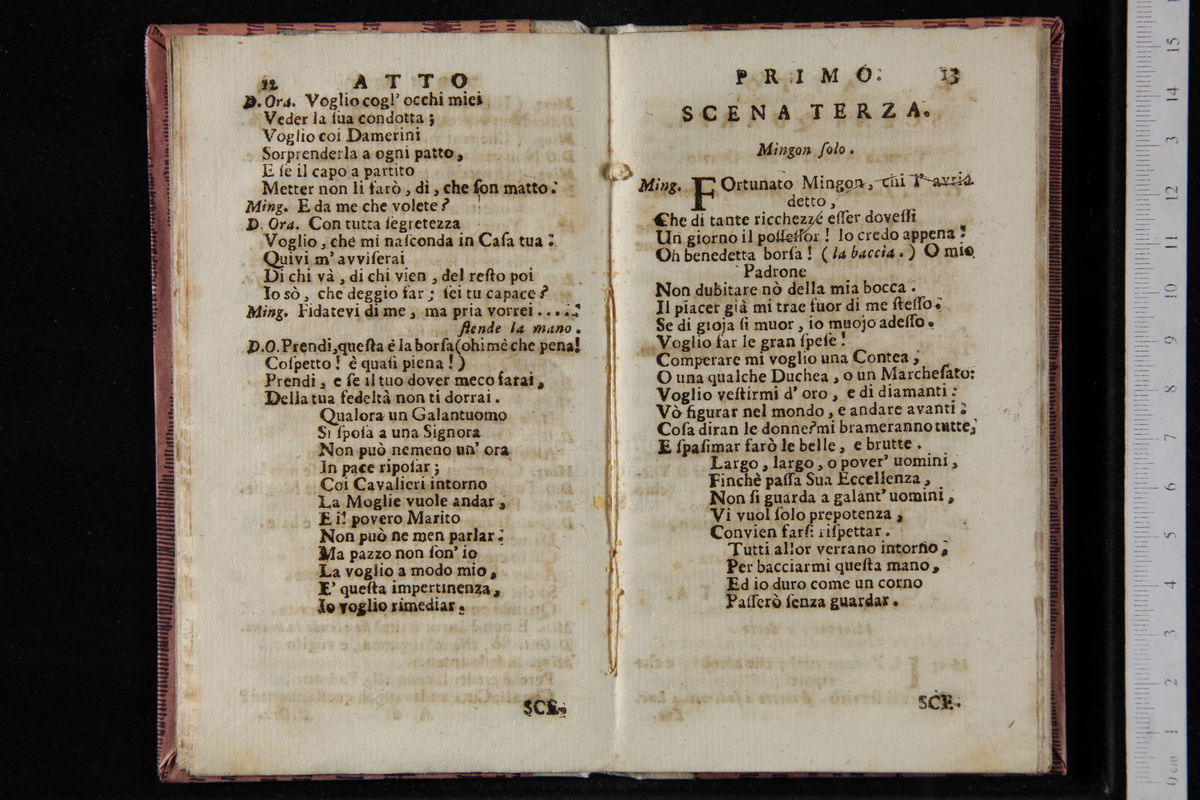 12 ATTO
D. Ora. Voglio cogl' occhi miei
Veder la ſua condotta ;
Voglio coi Damerini
Sorprenderla a ogni patto,
E ſe il capo a partito
Metter non li farò, dì, che ſon matto.
Ming. E da me che volete?
D. Ora. Con tutta ſegretezza
Voglio, che mi naſconda in Caſa tua :
Quivi m' avviſerai
Di chi và, di chi vien, del reſto poi
Io sò, che deggio far ; ſei tu capace?
Ming. Fidatevi di me, ma pria vorrei .....
ſtende la mano.
D.O. Prendi, queſta è la borſa (ohimè che pena!
Coſpetto! è quaſi piena!)
Prendi, e ſe il tuo dover meco farai,
Della tua fedeltà non ti dorrai.
Qualora un Galantuomo
Si ſpoſa a una Signora
Non può nemeno un' ora
In pace ripoſar ;
Coi Cavalieri intorno
La Moglie vuole andar ,
E il povero Marito
Non può ne men parlar :
Ma pazzo non ſon' io
La voglio a modo mio ,
E' queſta impertinenza ,
Io voglio rimediar .
SCE.
PRIMO. 13
SCENA TERZA.
Mingon ſolo.
Ming. FOrtunato Mingon, chi l' avria
detto,
Che di tante ricchezze eſſer doveſſi
Un giorno il poſſeſſor! Io credo appena!
Oh benedetta borſa! (la baccia.) O mio
Padrone
Non dubitare nò della mia bocca.
Il piacer già mi trae fuor di me ſteſſo.
Se di gioja ſi muor, io muojo adeſſo.
Voglio far le gran ſpeſe!
Comperare mi voglio una Contea ,
O una qualche Duchea, o un Marcheſato:
Voglio veſtirmi d' oro, e di diamanti :
Vò figurar nel mondo, e andare avanti :
Coſa diran le donne? mi brameranno tutte,
E ſpaſimar farò le belle, e brutte.
Largo, largo, o pover' uomini ,
Finchè paſſa Sua Eccellenza ,
Non ſi guarda a galant' uomini ,
Vi vuol ſolo prepotenza ,
Convien farſi riſpettar .
Tutti allor verrano intorno ,
Per bacciarmi queſta mano ,
Ed io duro come un corno
Paſſerò ſenza guardar .
SCE.